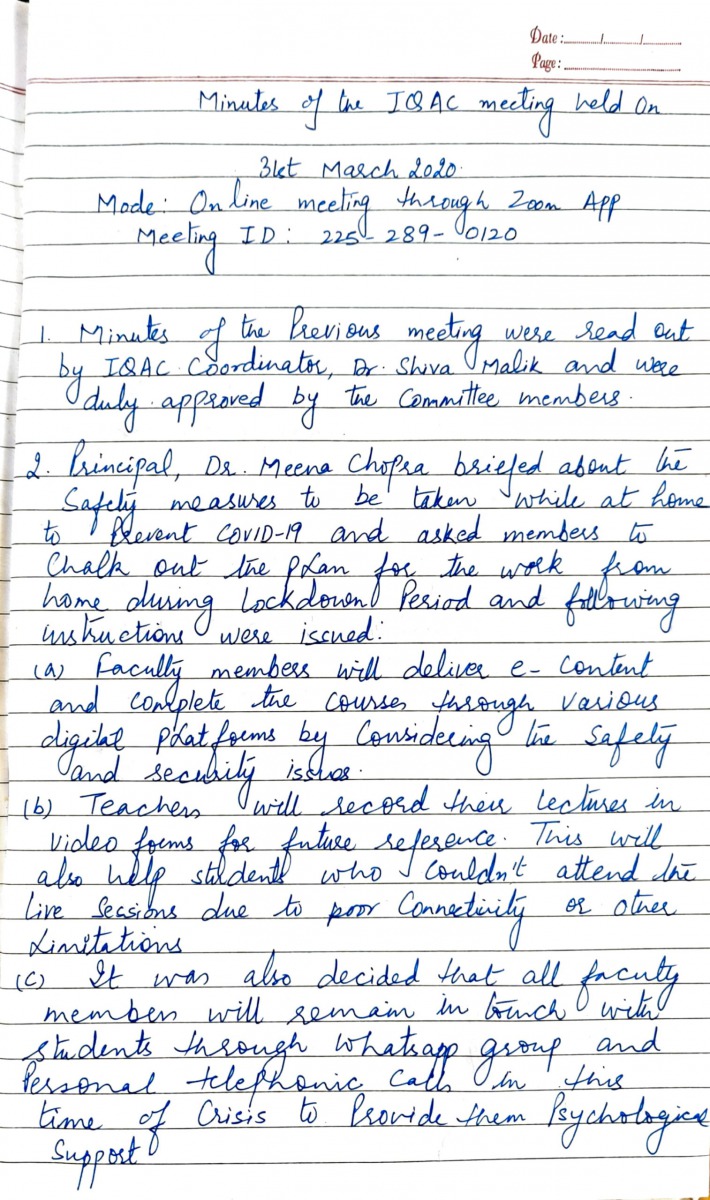 Date: ......./......./.......
Page: .......................
Minutes of the IQAC meeting held On
31st March 2020.
Mode: Online meeting through Zoom App
Meeting ID: 225-289-0120
1. Minutes of the Previous meeting were read out
by IQAC Coordinator, Dr. Shiva Malik and were
duly approved by the Committee members.
2. Principal, Dr. Meena Chopra briefed about the
Safety measures to be taken while at home
to Prevent COVID-19 and asked members to
Chalk out the plan for the work from
home during Lockdown Period and following
instructions were issued:
(a) Faculty members will deliver e-Content
and complete the courses through various
digital platforms by Considering the Safety
and security issues.
(b) Teachers will record their lectures in
video forms for future reference. This will
also help students who couldn't attend the
live Sessions due to poor Connectivity or other
Limitations
(c) It was also decided that all faculty
members will remain in touch with
students through whatsapp group and
Personal telephonic Calls in this
time of Crisis to Provide them Psychological
Support